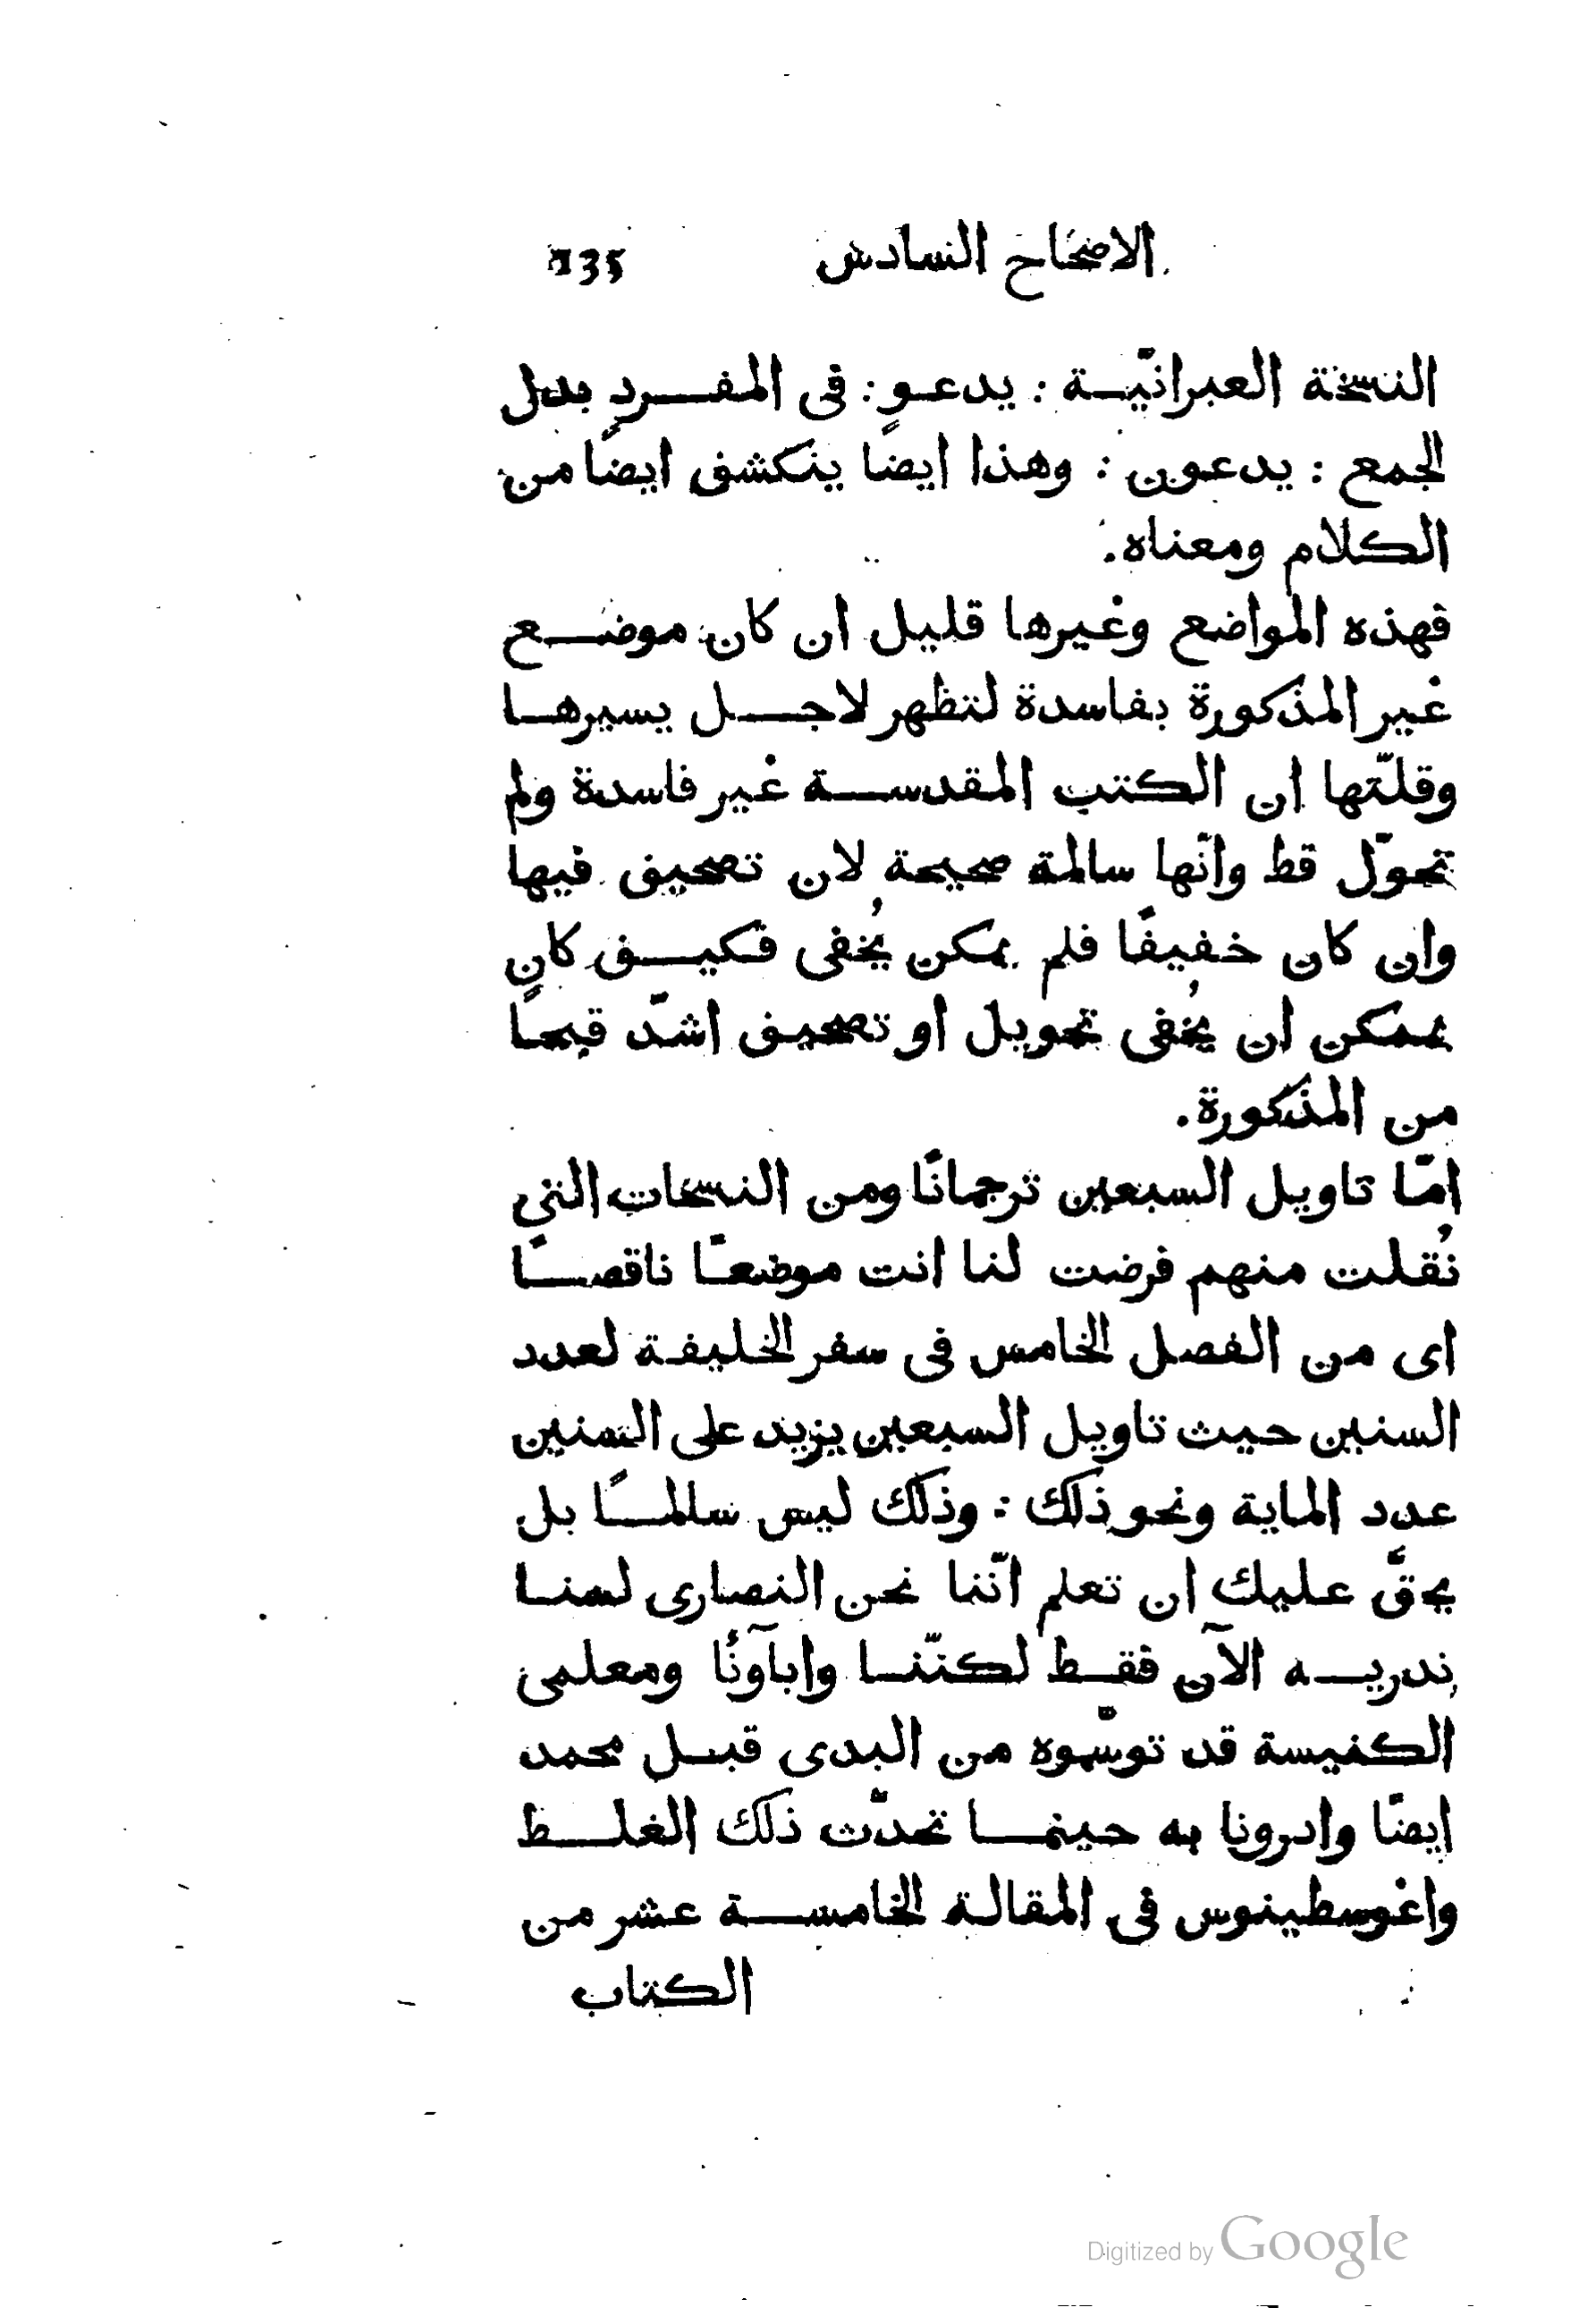 الاصحاح السادس 135
النسخة العبرانيّة : يدعو : فى المفرد بدل
الجمع : يدعون : وهذا ايضًا ينكشف ايضًا من
الكلام ومعناه.
فهذه المواضع وغيرها قليل ان كان موضع
غير المذكورة بفاسدة لتظهر لاجل يسيرها
وقلّتها ان الكتب المقدسة غير فاسدة ولم
تحوّل قط وانّها سالمة صحيحة لان تصحيف فيها
وان كان خفيفًا فلم يمكن يُخفى فكيف كان
يمكن ان يُخفى تحويل او تصحيف اشدّ قبحًا
من المذكورة.
امّا تاويل السبعين ترجمانًا ومن النسخات التى
نُقلت منهم فرضت لنا انت موضعًا ناقصًا
اى من الفصل الخامس فى سفر الخليفة لعدد
السنين حيث تاويل السبعين يزيد على السنين
عدد الماية ونحو ذلك : وذلك ليس سالمًا بل
يحقّ عليك ان تعلم انّنا نحن النصارى لسنا
ندريه الآن فقط لكنّنا وابآونُا ومعلمى
الكنيسة قد توسّموه من البدى قبل محمد
ايضًا وادرونا به حينما تحدّث ذلك الغلط
واغوسطينوس فى المقالة الخامسة عشر من
الكتاب
Digitized by Google